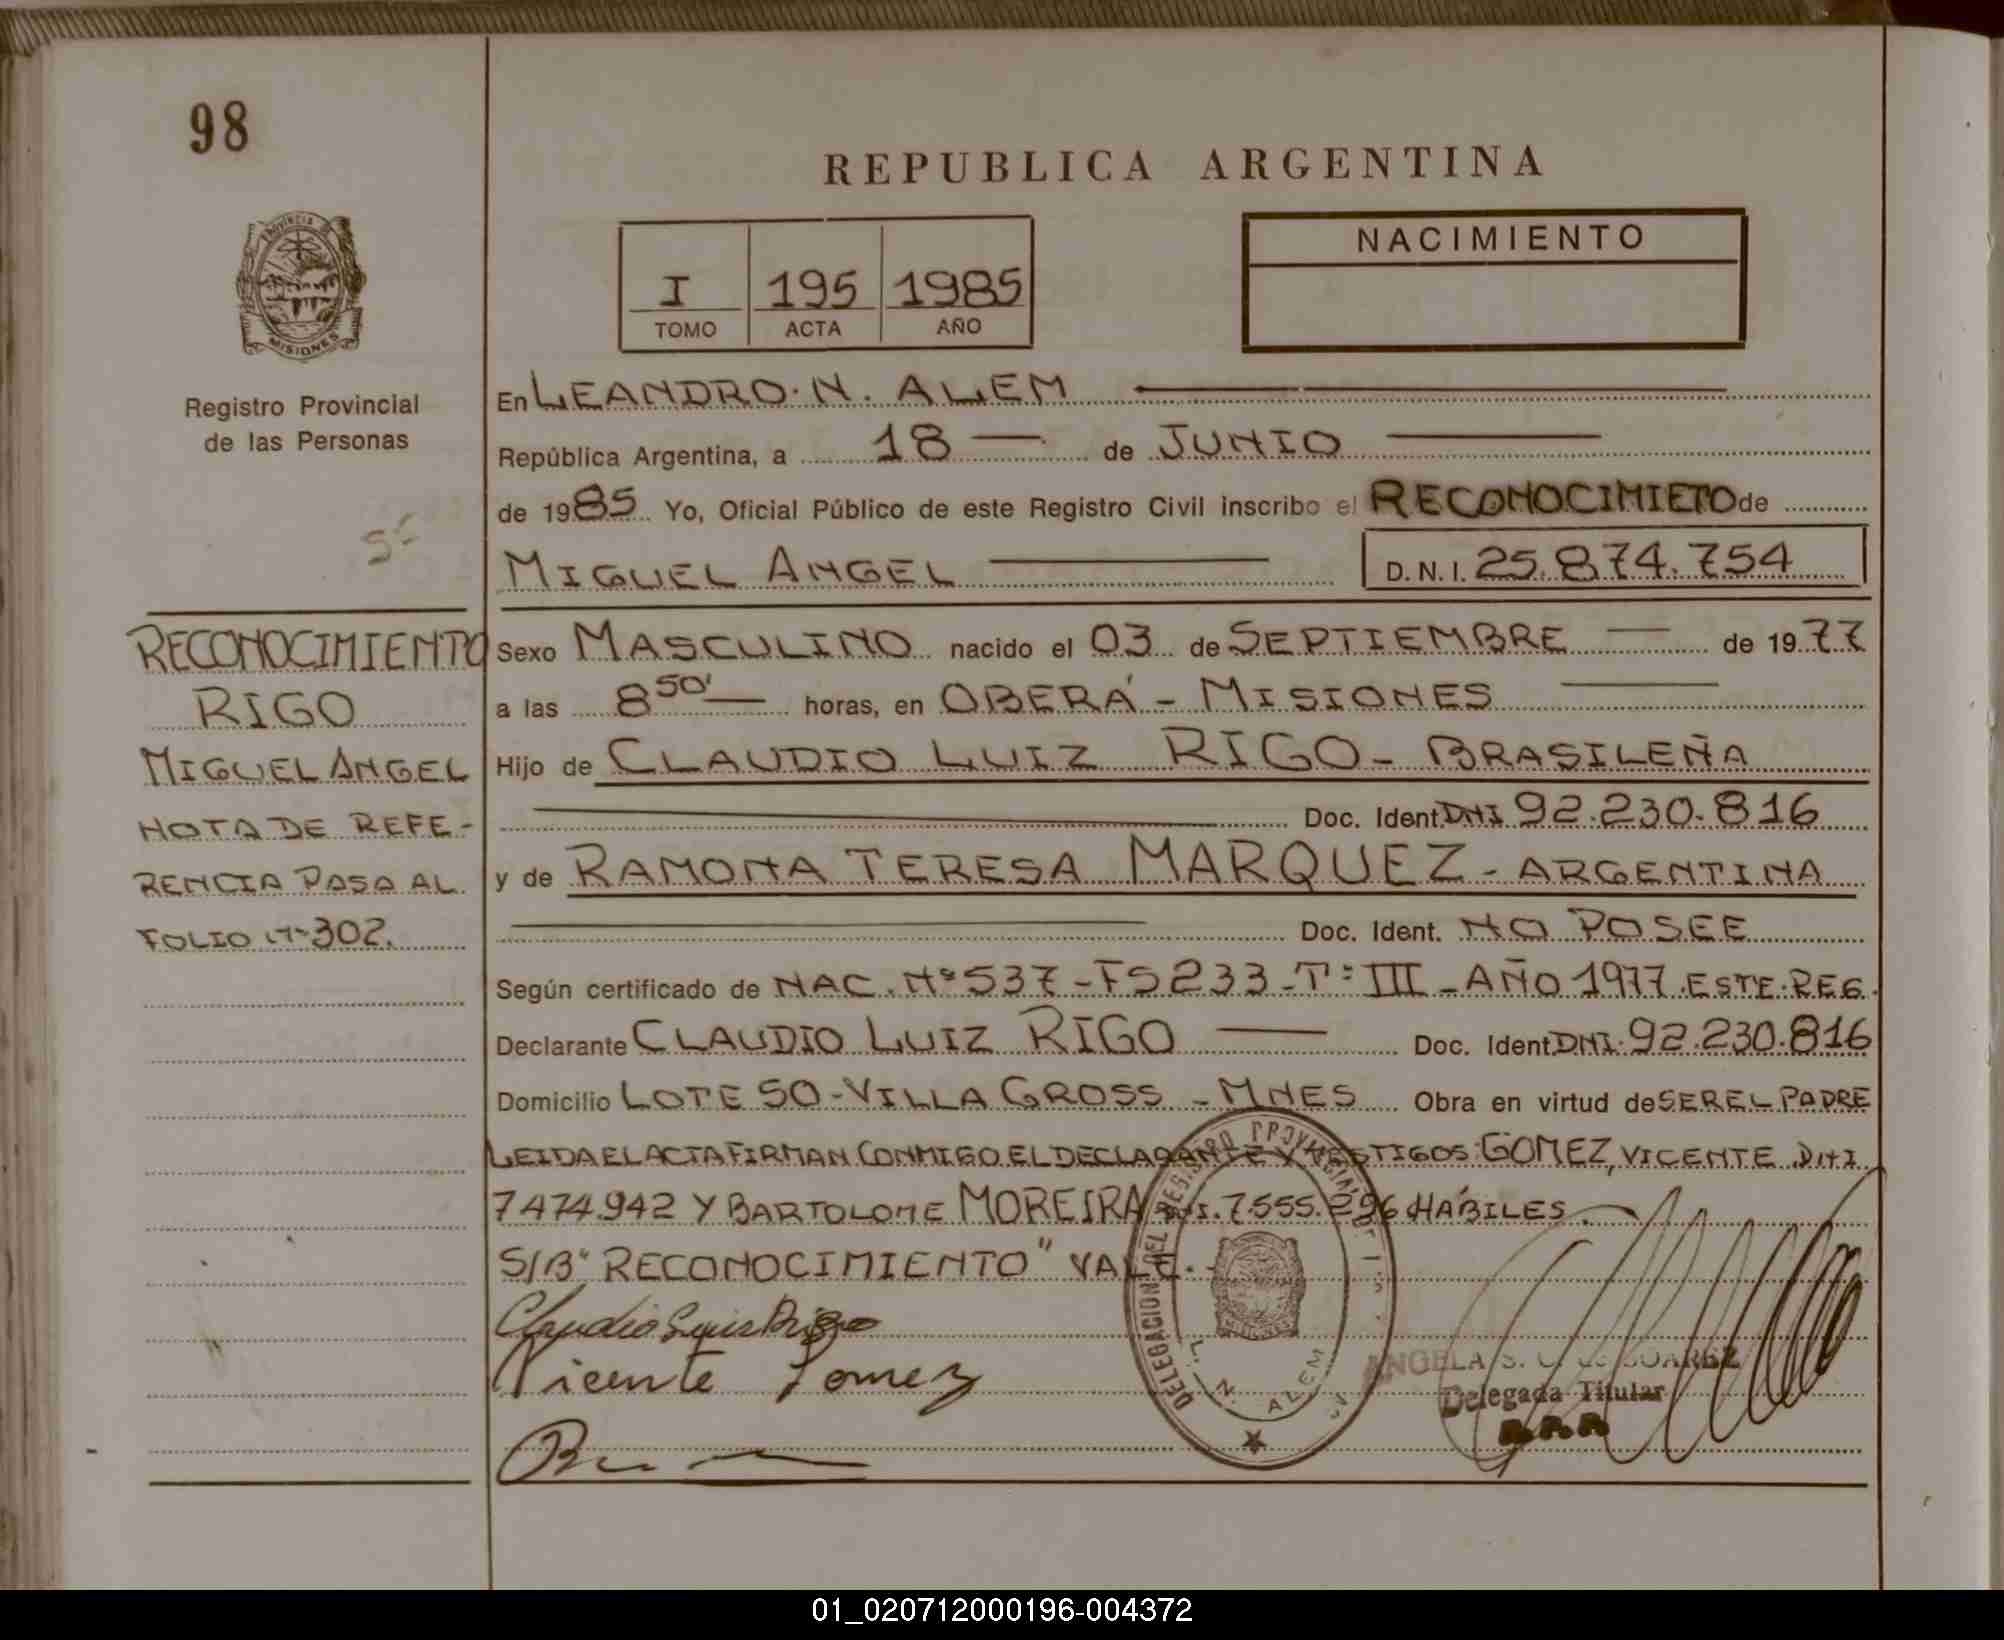 98
REPUBLICA ARGENTINA
PROVINCIA DE
MISIONES
Registro Provincial
de las Personas
I 195 1985
TOMO ACTA AÑO
NACIMIENTO
En LEANDRO. N. ALEM
República Argentina, a 18 de JUNIO
de 1985 Yo, Oficial Público de este Registro Civil inscribo el RECONOCIMIETO de
MIGUEL ANGEL D.N.I. 25.874.754
RECONOCIMIENTO
RIGO
MIGUEL ANGEL
NOTA DE REFE-
RENCIA PASA AL
FOLIO Nº 302.
Sexo MASCULINO nacido el 03 de SEPTIEMBRE de 1977
a las 8 50' horas, en OBERÁ - MISIONES
Hijo de CLAUDIO LUIZ RIGO - BRASILEÑA
Doc. Ident. DNI 92.230.816
y de RAMONA TERESA MARQUEZ - ARGENTINA
Doc. Ident. NO POSEE
Según certificado de NAC. Nº 537 - FS 233 - Tº III - AÑO 1977 ESTE REG.
Declarante CLAUDIO LUIZ RIGO Doc. Ident. DNI. 92.230.816
Domicilio LOTE 50 - VILLA GROSS - MNES Obra en virtud de SER EL PADRE
LEIDA EL ACTA FIRMAN CONMIGO EL DECLARANTE Y TESTIGOS: GOMEZ, VICENTE DNI
7474.942 Y BARTOLOME MOREIRA DNI. 7.555.296 HÁBILES.
S/B "RECONOCIMIENTO" VALE.-
Claudio Luis Rigo
Vicente Gomez
DELEGACION DEL REGISTRO PROVINCIAL DE
L. N. ALEM
ANGELA S. SUAREZ
Delegada Titular
R.P.P.
01_020712000196-004372